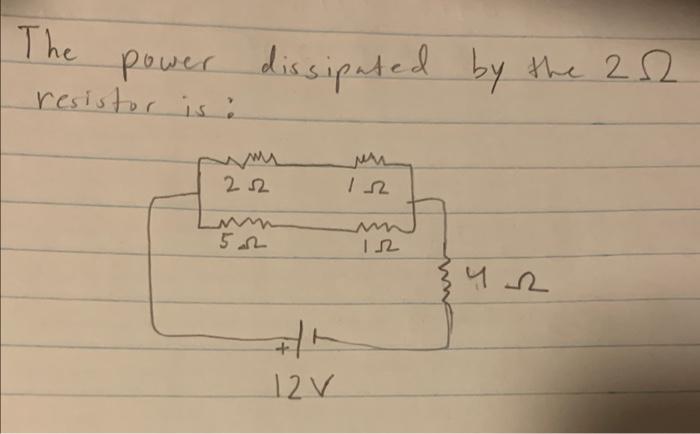 The power dissipated by the 2 Ω
resistor is:
2 Ω
1 Ω
5 Ω
1 Ω
4 Ω
+
12V